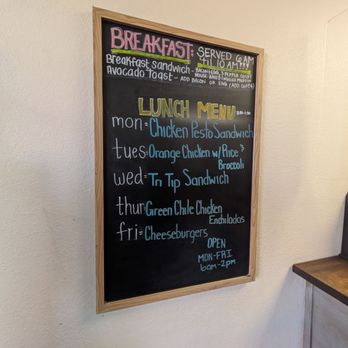 BREAKFAST: SERVED 6AM
'til 10 AM!!!
Breakfast Sandwich - BACON, EGG, & PEPPER JACK
Avocado Toast - ADD BACON OR EGG (ADD COST)
LUNCH MENU
mon= Chicken Pesto Sandwich
tues= Orange Chicken w/ Rice &
Broccoli
wed= Tri Tip Sandwich
thur= Green Chile Chicken
Enchiladas
fri= Cheeseburgers
OPEN
MON-FRI
6am-2pm